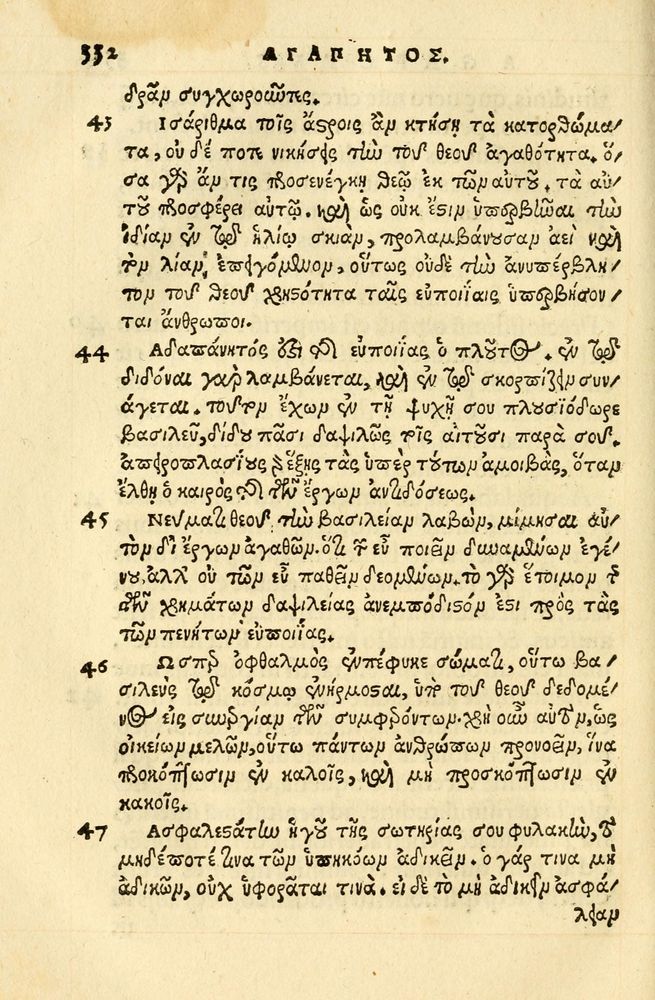 332 ΑΓΑΠΗΤΟΣ.
δρᾶν συγχωροῦντες.
43 Ισάριθμα τοῖς ἄστροις ἂν κτήσῃ τὰ κατορθώμα-
τα, οὐδέποτε νικήσεις τὴν τοῦ θεοῦ ἀγαθότητα. ὅ-
σα γὰρ ἄν τις προσενέγκῃ θεῷ ἐκ τῶν αὐτοῦ, τὰ αὐ-
τοῦ προσφέρει αὐτῷ. καὶ ὡς οὐκ ἔστιν ὑπερβῆναι τὴν
ἰδίαν ἐν τῷ ἡλίῳ σκιὰν, προλαμβάνουσαν ἀεὶ καὶ
τὸν λίαν ἐπειγόμενον, οὕτως οὐδὲ τὴν ἀνυπέρβλη-
τον τοῦ θεοῦ χρηστότητα ταῖς εὐποιΐαις ὑπερβήσον-
ται ἄνθρωποι.
44 Αδαπάνητός ἐστι τῆς εὐποιΐας ὁ πλοῦτος. ἐν τῷ
διδόναι γὰρ λαμβάνεται, καὶ ἐν τῷ σκορπίζειν συν-
άγεται. τοῦτον ἔχων ἐν τῇ ψυχῇ σου πλουσιόδωρε
βασιλεῦ, δίδου πᾶσι δαψιλῶς τοῖς αἰτοῦσι παρὰ σοῦ.
ἀπειροπλασίους γὰρ ἕξεις τὰς ὑπὲρ τούτων ἀμοιβὰς, ὅταν
ἔλθῃ ὁ καιρὸς τῆς τῶν ἔργων ἀντιδόσεως.
45 Νεύματι θεοῦ τὴν βασιλείαν λαβὼν, μίμησαι αὐ-
τὸν δι' ἔργων ἀγαθῶν. ὅτι τῶν εὖ ποιεῖν δυναμένων ἐγέ-
νου, ἀλλ' οὐ τῶν εὖ παθεῖν δεομένων. τὸ γὰρ ἕτοιμον τῆς
τῶν χρημάτων δαψιλείας ἀνεμπόδιστόν ἐστι πρὸς τὰς
τῶν πενήτων εὐποιΐας.
46 Ωσπερ ὀφθαλμὸς ἐμπέφυκε σώματι, οὕτω βα-
σιλεὺς τῷ κόσμῳ ἐνήρμοσται, ὑπὸ τοῦ θεοῦ δεδομέ-
νος εἰς συνεργίαν τῶν συμφερόντων. χρὴ οὖν αὐτὸν, ὡς
οἰκείων μελῶν, οὕτω πάντων ἀνθρώπων προνοεῖν, ἵνα
προκόπτωσιν ἐν καλοῖς, καὶ μὴ προσκόπτωσιν ἐν
κακοῖς.
47 Ασφαλεστάτην ἡγοῦ τῆς σωτηρίας σου φυλακὴν, τὸ
μηδέποτέ τινα τῶν ὑπηκόων ἀδικεῖν. ὁ γάρ τινα μὴ
ἀδικῶν, οὐχ ὑφορᾶται τινά. εἰ δὲ τὸ μὴ ἀδικεῖν ἀσφά-
λειαν